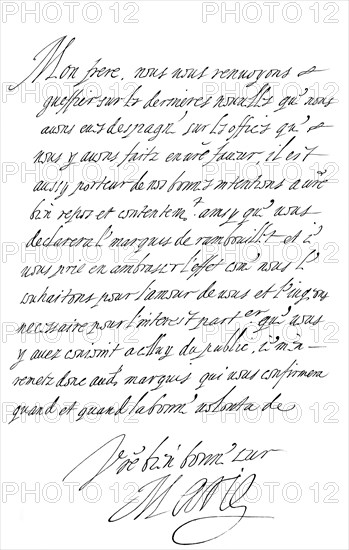 Mon frere, nous vous renvoyons
guessier sur les dernieres nouvelles qu'nous
avons eues despagn' sur les offices qu'
nous y avons faitz en vre faveur, il est
aussy porteur de nos bonnes intentions a vre
bien repos et contentemt. amsy qu' vous
declarera l' marquis de rambouillet et i'
vous prie en ambrasser l'effet com' nous l'
souhaitons pour l'amour de vous et l'
necessaire pour l'interest parter qu' vous
y avez conioint a celluy du public, i' m'en
remetz donc audt marquis qui vous confirmera
quand et quand la bonn' volonta de
Vre bien bonn' sur
Marie
PHOTO 12